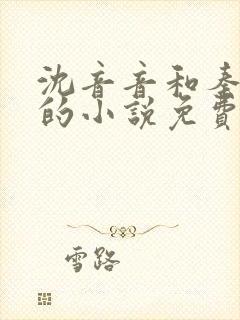 沈音音和秦
的小說免費
雪路